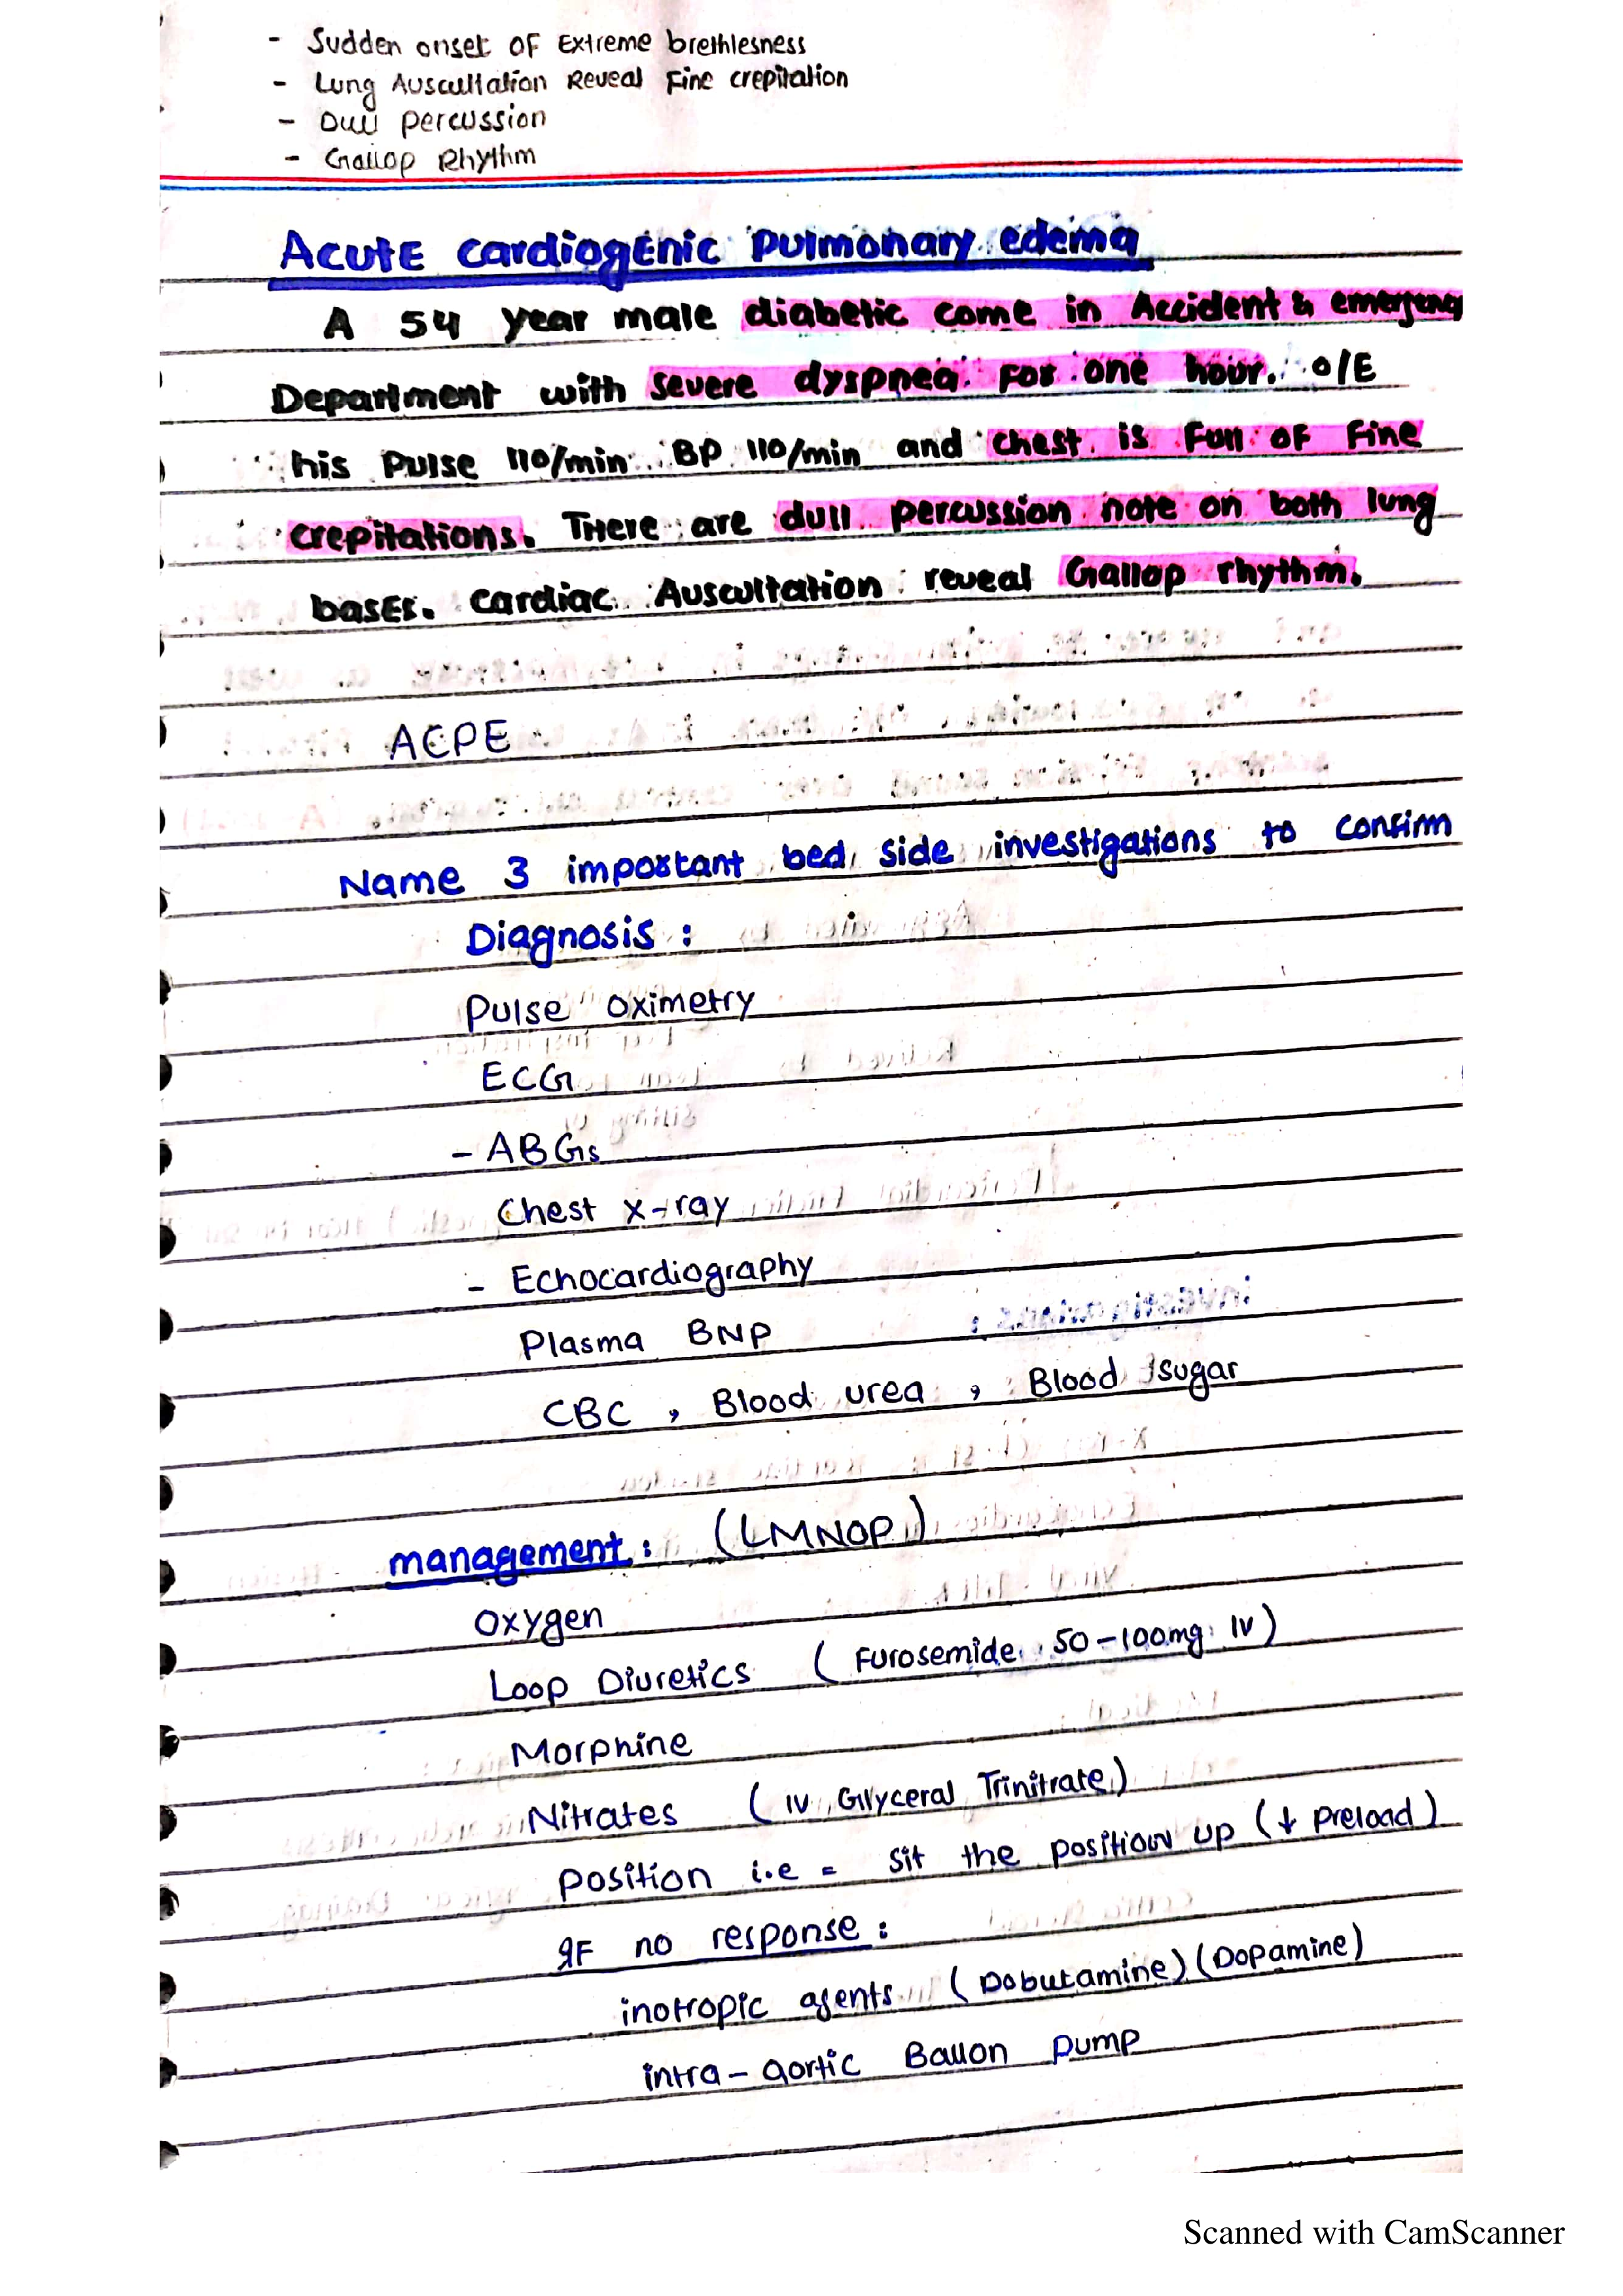 - Sudden onset OF Extreme brethlesness
- Lung Auscultation Reveal Fine crepitation
- Dull percussion
- Gallop Rhythm
Acute cardiogenic Pulmonary edema
A 54 year male diabetic come in Accident & emergency
Department with severe dyspnea For one hour. O/E
his Pulse 110/min BP 110/min and chest is Full OF Fine
crepitations. There are dull percussion note on both lung
bases. cardiac Auscultation reveal Gallop rhythm.
ACPE
Name 3 important bed side investigations to confirm
Diagnosis :
Pulse oximetry
ECG
- ABGs
Chest x-ray
- Echocardiography
Plasma BNP
CBC , Blood urea , Blood sugar
management : (LMNOP)
Oxygen
Loop Diuretics (Furosemide 50-100mg IV)
Morphine
Nitrates (IV Glyceral Trinitrate)
Position i.e = sit the position up (↓ Preload)
IF no response :
inotropic agents (Dobutamine) (Dopamine)
intra-aortic Ballon pump
Scanned with CamScanner